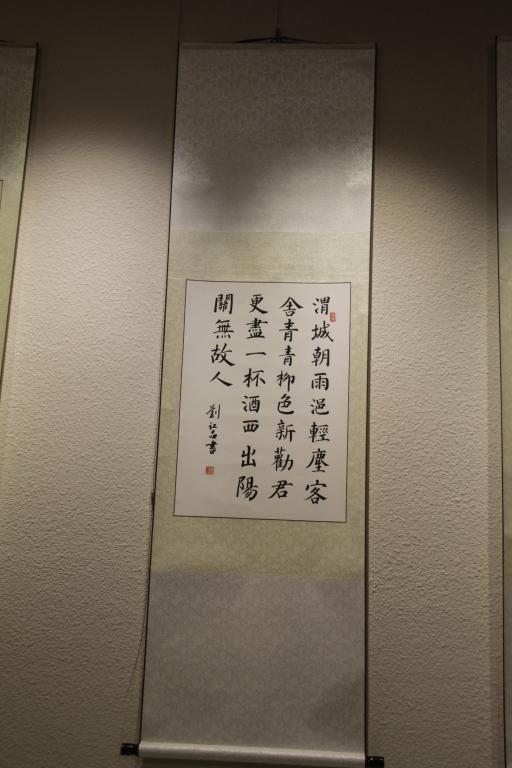 渭城朝雨浥輕塵客
舍青青柳色新勸君
更盡一杯酒西出陽
關無故人
劉
書